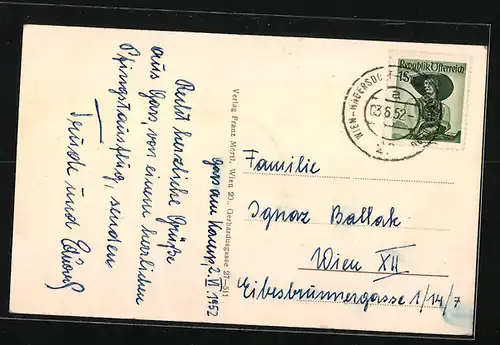 Gars am Kamp, 2. VI. 1952
Recht herzliche Grüße
aus Gars von einem herrlichen
Pfingstausflug, senden
Trude und
Verlag Franz Mörtl, Wien 20., Gerhardusgasse 27-511
Republik Österreich
1S
WIEN-HADERSDORF
03.6.52
Familie
Ignaz Ballak
Wien XII
Eibesbrunnergasse 1/14/7